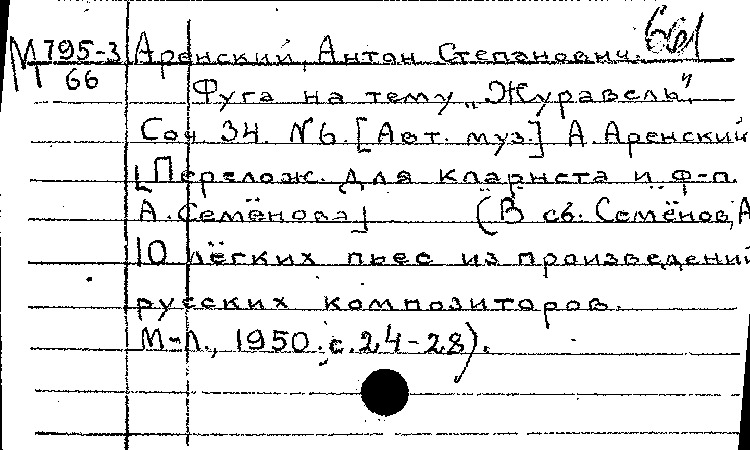 661
М 795-3 Аренский, Антон Степанович.
66
Фуга на тему „Журавель“.
Соч. 34. N6. [Авт. муз.] А. Аренский
[Перелож. для кларнета и ф-п.
А. Семёнова] (В сб. Семёнов, А
10 лёгких пьес из произведений
русских композиторов.
М-Л., 1950. с. 24-28).